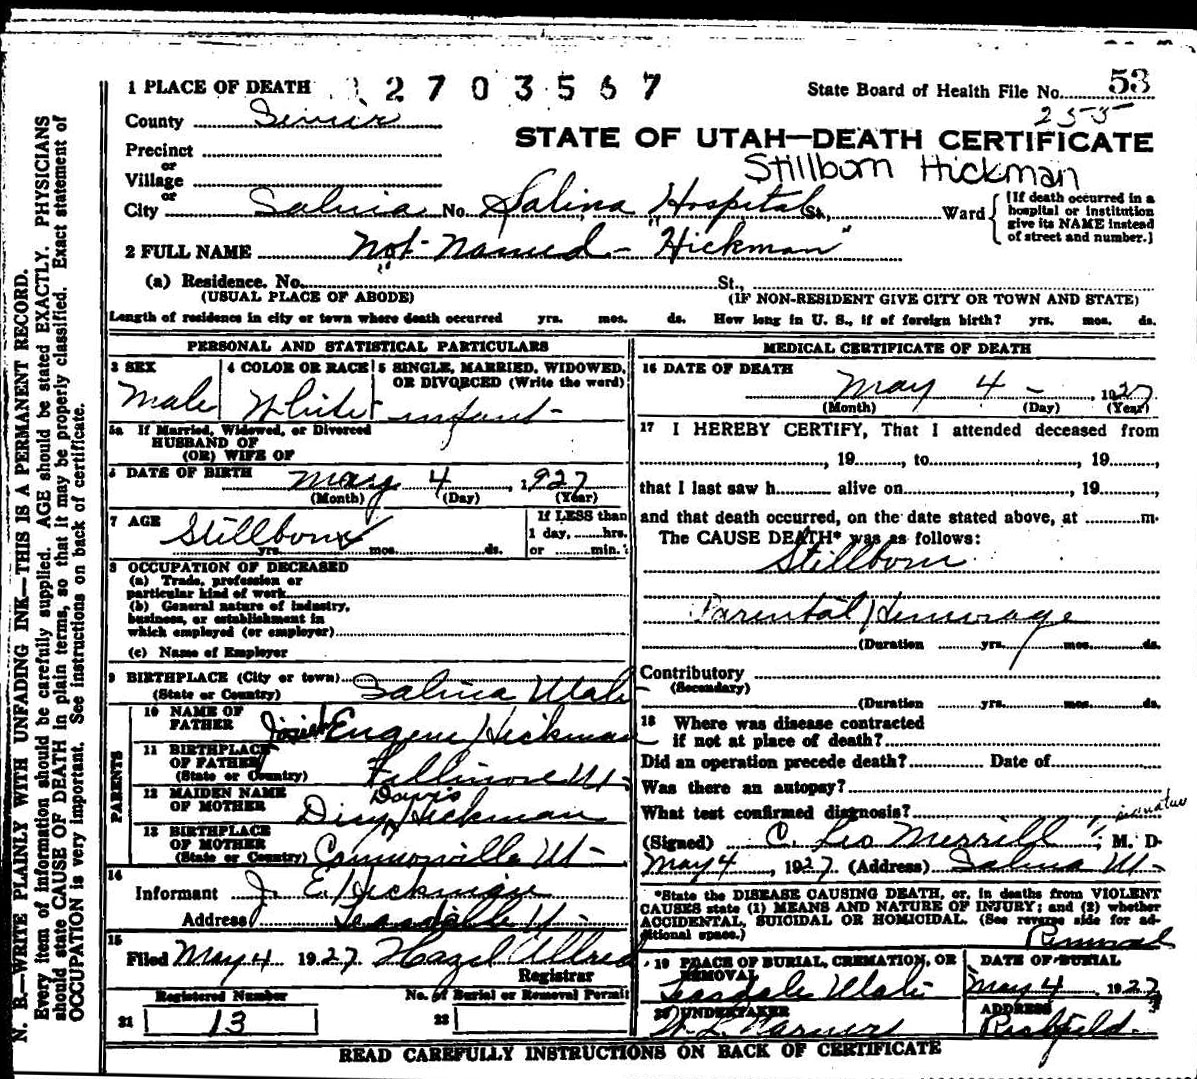 1 PLACE OF DEATH 2 7 0 3 5 6 7
State Board of Health File No. 53
255
County Sevier
STATE OF UTAH—DEATH CERTIFICATE
Precinct
or
Stillborn Hickman
Village
or
City Salina No. Salina Hospital St., Ward
[If death occurred in a hospital or institution give its NAME instead of street and number.]
2 FULL NAME "Not-Named - Hickman"
(a) Residence. No. St.,
(USUAL PLACE OF ABODE) (IF NON-RESIDENT GIVE CITY OR TOWN AND STATE)
Length of residence in city or town where death occurred yrs. mos. ds. How long in U. S., if of foreign birth? yrs. mos. ds.
PERSONAL AND STATISTICAL PARTICULARS
3 SEX 4 COLOR OR RACE 5 SINGLE, MARRIED, WIDOWED,
OR DIVORCED (Write the word)
Male White infant -
5a If Married, Widowed, or Divorced
HUSBAND OF
(OR) WIFE OF
6 DATE OF BIRTH May 4 1927
(Month) (Day) (Year)
7 AGE Stillborn
yrs. mos. ds.
If LESS than
1 day, hrs.
or min.
8 OCCUPATION OF DECEASED
(a) Trade, profession or
particular kind of work
(b) General nature of industry,
business, or establishment in
which employed (or employer)
(c) Name of Employer
9 BIRTHPLACE (City or town)
(State or Country) Salina Utah
PARENTS
10 NAME OF
FATHER Eugene Hickman
11 BIRTHPLACE
OF FATHER
(State or Country) Fillmore Ut-
12 MAIDEN NAME
OF MOTHER Davis
Hickman
13 BIRTHPLACE
OF MOTHER
(State or Country) Cannonville Ut-
14
Informant J. E. Hickman
Address Teasdale Ut-
15
Filed May 4 1927 Hazel Allred
Registrar
Registered Number No. of Burial or Removal Permit
21 13 22
MEDICAL CERTIFICATE OF DEATH
16 DATE OF DEATH
May 4 - , 1927
(Month) (Day) (Year)
17 I HEREBY CERTIFY, That I attended deceased from
, 19 , to , 19 ,
that I last saw h alive on , 19 ,
and that death occurred, on the date stated above, at m.
The CAUSE DEATH* was as follows:
Stillborn
(Duration yrs. mos. ds.
Contributory
(Secondary)
(Duration yrs. mos. ds.
18 Where was disease contracted
if not at place of death?
Did an operation precede death? Date of
Was there an autopsy?
What test confirmed diagnosis?
(Signed) C. Leo Merrill, M. D.
May 4, 1927. (Address) Salina Ut-
*State the DISEASE CAUSING DEATH, or, in deaths from VIOLENT
CAUSES state (1) MEANS AND NATURE OF INJURY; and (2) whether
ACCIDENTAL, SUICIDAL OR HOMICIDAL. (See reverse side for ad-
ditional space.)
Removal
19 PLACE OF BURIAL, CREMATION, OR
REMOVAL
DATE OF BURIAL
Teasdale Utah May 4 1927
20 UNDERTAKER ADDRESS
Richfield.
READ CAREFULLY INSTRUCTIONS ON BACK OF CERTIFICATE
N. B.—WRITE PLAINLY WITH UNFADING INK—THIS IS A PERMANENT RECORD.
Every item of information should be carefully supplied. AGE should be stated EXACTLY. PHYSICIANS
should state CAUSE OF DEATH in plain terms, so that it may be properly classified. Exact statement of
OCCUPATION is very important. See instructions on back of certificate.